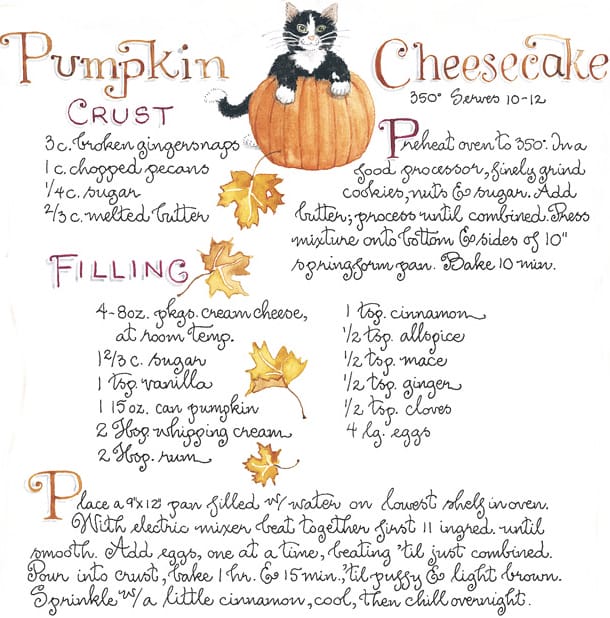 Pumpkin Cheesecake
350° Serves 10-12
CRUST
3 c. broken gingersnaps
1 c. chopped pecans
1/4 c. sugar
2/3 c. melted butter
Preheat oven to 350°. In a
food processor, finely grind
cookies, nuts & sugar. Add
butter; process until combined. Press
mixture onto bottom & sides of 10"
springform pan. Bake 10 min.
FILLING
4-8oz. pkgs. cream cheese,
at room temp.
1 2/3 c. sugar
1 tsp. vanilla
1 15 oz. can pumpkin
2 Tbsp. whipping cream
2 Tbsp. rum
1 tsp. cinnamon
1/2 tsp. allspice
1/2 tsp. mace
1/2 tsp. ginger
1/2 tsp. cloves
4 lg. eggs
Place a 9"x 12" pan filled w/ water on lowest shelf in oven.
With electric mixer beat together first 11 ingred. until
smooth. Add eggs, one at a time, beating 'til just combined.
Pour into crust, bake 1 hr. & 15 min., 'til puffy & light brown.
Sprinkle w/ a little cinnamon, cool, then chill overnight.